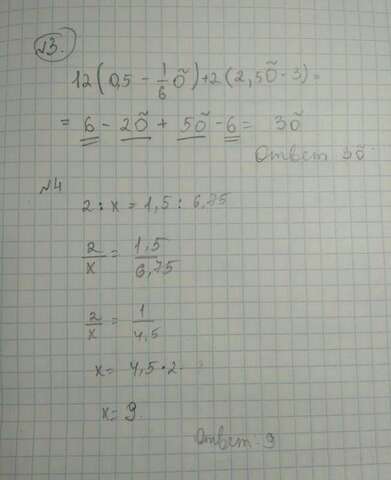 №3.
12(0,5 - 1/6 õ) + 2(2,5õ - 3) =
= 6 - 2õ + 5õ - 6 = 3õ
Ответ 3õ
№4
2 : x = 1,5 : 6,75
2/x = 1,5/6,75
2/x = 1/4,5
x = 4,5 · 2
x = 9
Ответ 9